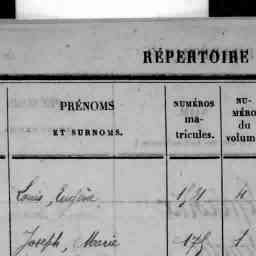 RÉPERTOIRE
PRÉNOMS
ET SURNOMS.
NUMÉROS
ma-
tricules.
NU-
MÉRO
du
volum
Louis, Eugène
Joseph, Marie 175 1